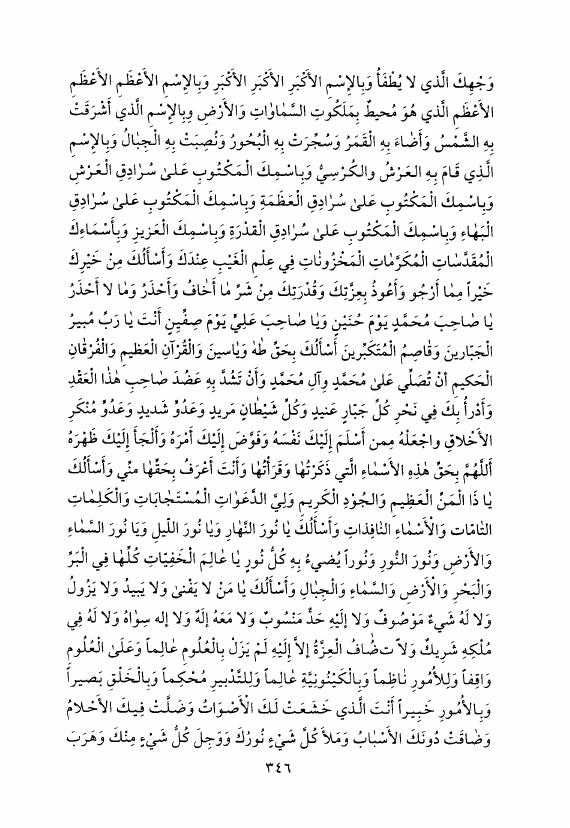 وَجْهِكَ الَّذي لا يُطْفَأُ وَبِالإسْمِ الأَكْبَرِ الأَكْبَرِ الأَكْبَرِ وَبِالإسْمِ الأَعْظَمِ الأَعْظَمِ
الأَعْظَمِ الَّذي هُوَ مُحيطٌ بِمَلَكُوتِ السَّماوَاتِ وَالأَرْضِ وبِالإسْمِ الَّذي أَشْرَقَتْ
بِهِ الشَّمْسُ وَأَضاءَ بِهِ الْقَمَرُ وَسُجِّرَتْ بِهِ الْبُحُورُ وَنُصِبَتْ بِهِ الْجِبالُ وَبِالإسْمِ
الَّذِي قَامَ بِهِ العَرْشُ والكُرْسِيُّ وَبِاسْمِكَ الْمَكْتُوبِ عَلىٰ سُرادِقِ الْعَرْشِ
وَبِاسْمِكَ الْمَكْتُوبِ عَلىٰ سُرادِقِ الْعَظَمَةِ وَبِاسْمِكَ الْمَكْتُوبِ عَلىٰ سُرادِقِ
البَهاءِ وَبِاسْمِكَ الْمَكْتُوبِ عَلىٰ سُرادِقِ الْقدْرَةِ وَبِاسْمِكَ الْعَزيزِ وَبِأَسْماءِكَ
الْمُقَدَّساتِ الْمُكَرَّماتِ المَخْزُوناتِ فِي عِلْمِ الْغَيْبِ عِنْدَكَ وَأَسْأَلُكَ مِنْ خَيْرِكَ
خَيْراً مِمّا أَرْجُو وَأَعُوذُ بِعِزَّتِكَ وَقُدْرَتِكَ مِنْ شَرِّ مٰا أَخافُ وَأَحْذَرُ وَمٰا لا أَحْذَرُ
يا صٰاحِبَ مُحَمَّدٍ يَوْمَ حُنَيْنٍ وَيٰا صٰاحِبَ عَلِيٍّ يَوْمَ صِفّينٍ أَنْتَ يٰا رَبِّ مُبيرُ
الْجَبارينَ وَقٰاصِمُ الْمُتَكَبِّرينَ أَسْأَلُكَ بِحَقِّ طٰهٰ وَيٰاسينَ وَالْقُرْآنِ الْعَظيمِ وَالْفُرْقٰانِ
الْحَكيمِ أَنْ تُصَلِّيَ عَلىٰ مُحَمَّدٍ وَآلِ مُحَمَّدٍ وَأَنْ تَشُدَّ بِهِ عَضُدَ صٰاحِبِ هٰذٰا الْعَقْدِ
وَأَدْرأُ بِكَ فِي نَحْرِ كُلِّ جَبّارٍ عَنيدٍ وَكُلِّ شَيْطٰانٍ مَريدٍ وَعَدُوٍّ شَديدٍ وَعَدُوٍّ مُنْكَرِ
الأَخْلاقِ واجْعَلْهُ مِمن أَسْلَمَ إِلَيْكَ نَفْسَهُ وَفَوَّضَ إِلَيْكَ أَمْرَهُ وَأَلْجَأَ إِلَيْكَ ظَهْرَهُ
أَللَّهُمَّ بِحَقِّ هٰذِهِ الأَسْمٰاءِ الَّتي ذَكَرْتُهٰا وَقَرَأْتُهٰا وَأَنْتَ أَعْرَفُ بِحَقِّهٰا مِنّي وَأَسْأَلُكَ
يٰا ذَا الْمَنِّ الْعَظِيمِ وَالجُودِ الْكَريمِ وَلِيَّ الدَّعَوٰاتِ الْمُسْتَجٰابٰاتِ وَالْكَلِمٰاتِ
التٰامّات وَالْأَسْمٰاءِ النٰافِذٰاتِ وَأَسْأَلُكَ يٰا نُورَ النَّهٰارِ وَيٰا نُورَ اللَّيلِ وَيٰا نُورَ السَّمٰاءِ
وَالأَرْضِ وَنُورَ النُّورِ وَنُوراً يُضيءُ بِهِ كُلُّ نُورٍ يٰا عٰالِمَ الْخَفِيّاتِ كُلِّهٰا فِي الْبَرِّ
وَالْبَحْرِ وَالْأَرْضِ وَالسَّمٰاءِ وَالْجِبٰالِ وَأَسْأَلُكَ يٰا مَنْ لا يَفْنىٰ وَلا يَبيدُ وَلا يَزُولُ
وَلا لَهُ شَيءٌ مَوْصُوفٌ وَلا إِلَيْهِ حَدٌّ مَنْسُوبٌ وَلا مَعَهُ إِلَهٌ وَلا إِله سِوٰاهُ وَلا لَهُ فِي
مُلْكِهِ شَرِيكٌ وَلاٰ تضٰافُ الْعِزَّةُ إِلاّ إِلَيْهِ لَمْ يَزَلْ بِالْعُلُومِ عٰالِماً وَعَلَىٰ الْعُلُومِ
وٰاقِفاً وَلِلأُمُورِ نٰاظِماً وَبِالْكَيْنُونِيَّةِ عٰالِماً وَلِلتَّدْبيرِ مُحْكِماً وَبِالْخَلْقِ بَصيراً
وَبِالأُمُورِ خَبيراً أَنْتَ الَّذي خَشَعَتْ لَكَ الأَصْوٰاتُ وَضَلَّتْ فِيكَ الأَحْلامُ
وَضٰاقَتْ دُونَكَ الأَسْبٰابُ وَمَلأَ كُلَّ شَيْءٍ نُورُكَ وَوَجِلَ كُلُّ شَيْءٍ مِنْكَ وَهَرَبَ
٣٤٦